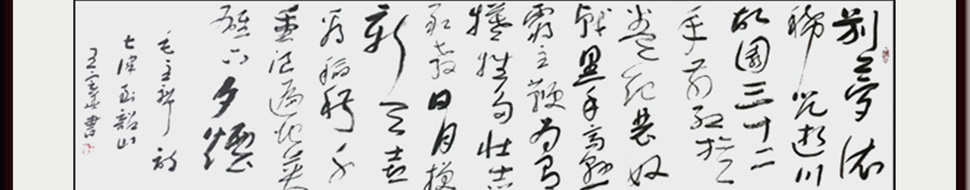 别夢依
稀咒逝川
故園三十二
年前红旗
卷起農奴
戟黑手高懸
霸主鞭为有
犧牲多壮志
敢教日月换
新天喜
看稻菽千
重浪遍地英
雄下夕煙
毛主席诗
七律到韶山
王 書